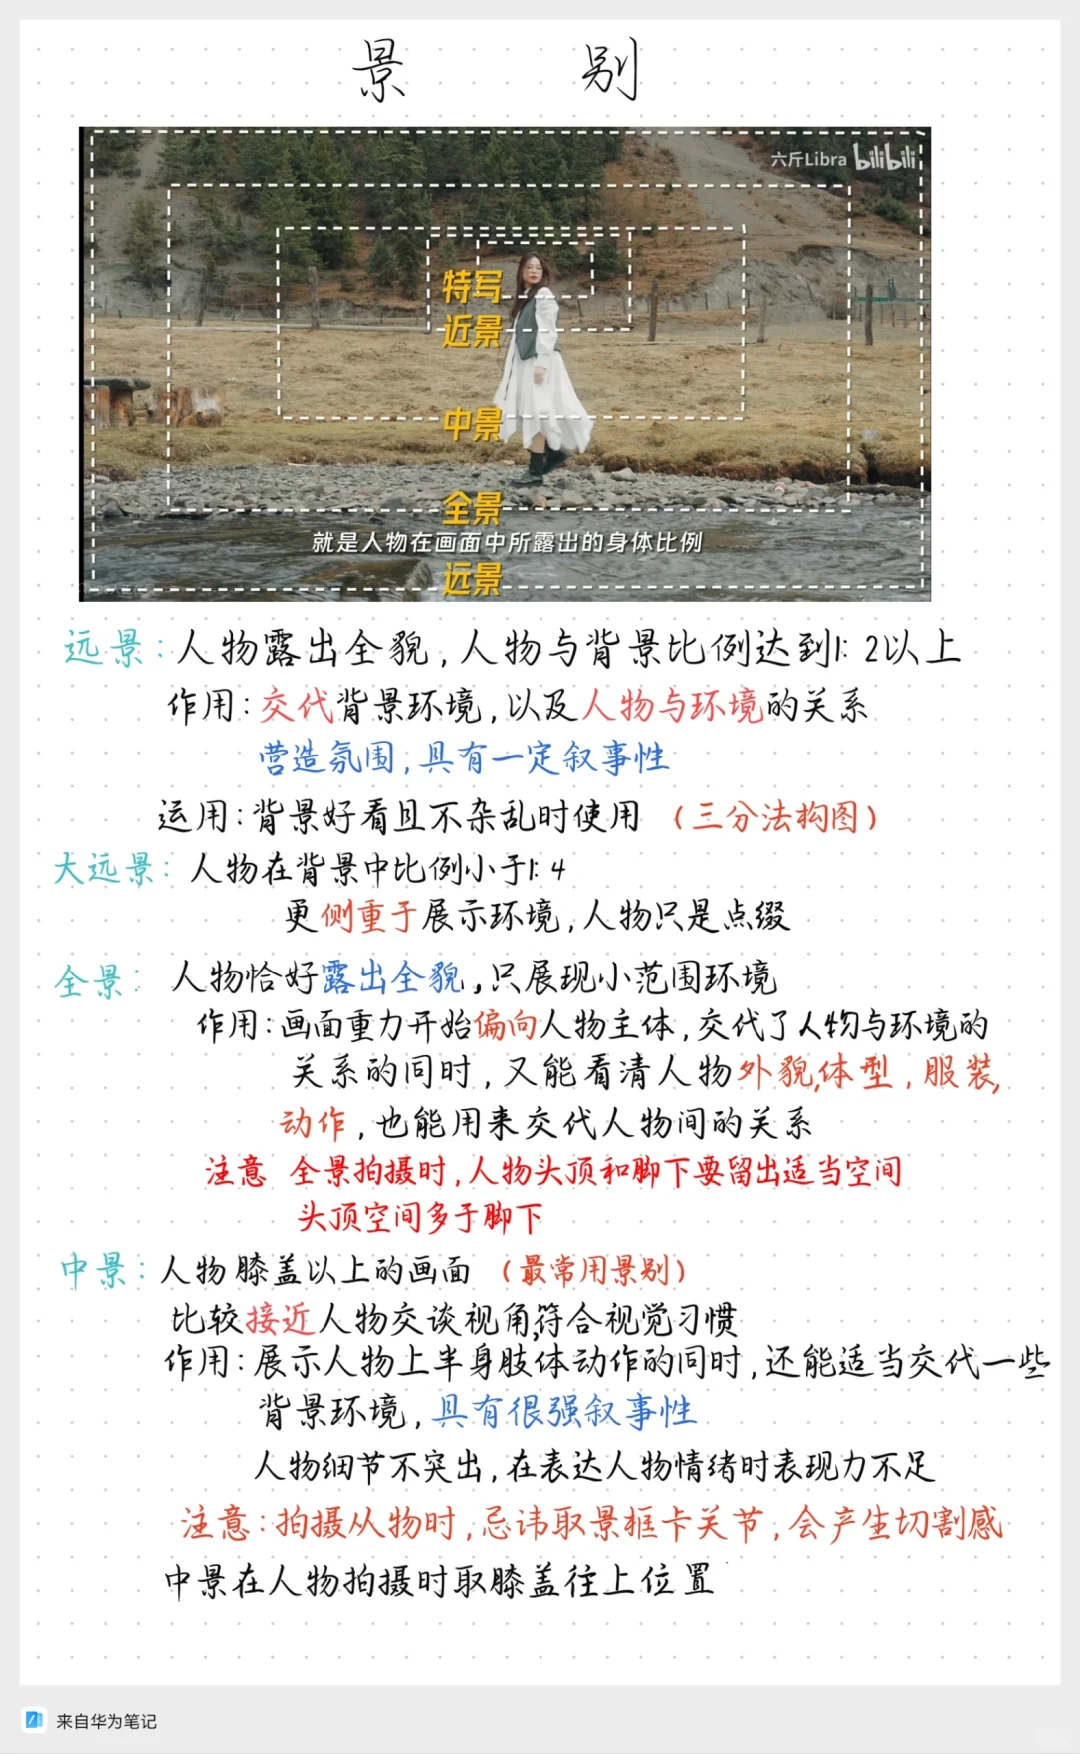 景 别
六斤Libra bilibili
特写
近景
中景
全景
就是人物在画面中所露出的身体比例
远景
远景：人物露出全貌，人物与背景比例达到1：2以上
作用：交代背景环境，以及人物与环境的关系
营造氛围，具有一定叙事性
运用：背景好看且不杂乱时使用 （三分法构图）
大远景：人物在背景中比例小于1：4
更侧重于展示环境，人物只是点缀
全景：人物恰好露出全貌，只展现小范围环境
作用：画面重力开始偏向人物主体，交代了人物与环境的
关系的同时，又能看清人物外貌，体型，服装，
动作，也能用来交代人物间的关系
注意 全景拍摄时，人物头顶和脚下要留出适当空间
头顶空间多于脚下
中景：人物膝盖以上的画面 （最常用景别）
比较接近人物交谈视角，符合视觉习惯
作用：展示人物上半身肢体动作的同时，还能适当交代一些
背景环境，具有很强叙事性
人物细节不突出，在表达人物情绪时表现力不足
注意：拍摄从物时，忌讳取景框卡关节，会产生切割感
中景在人物拍摄时取膝盖往上位置
来自华为笔记